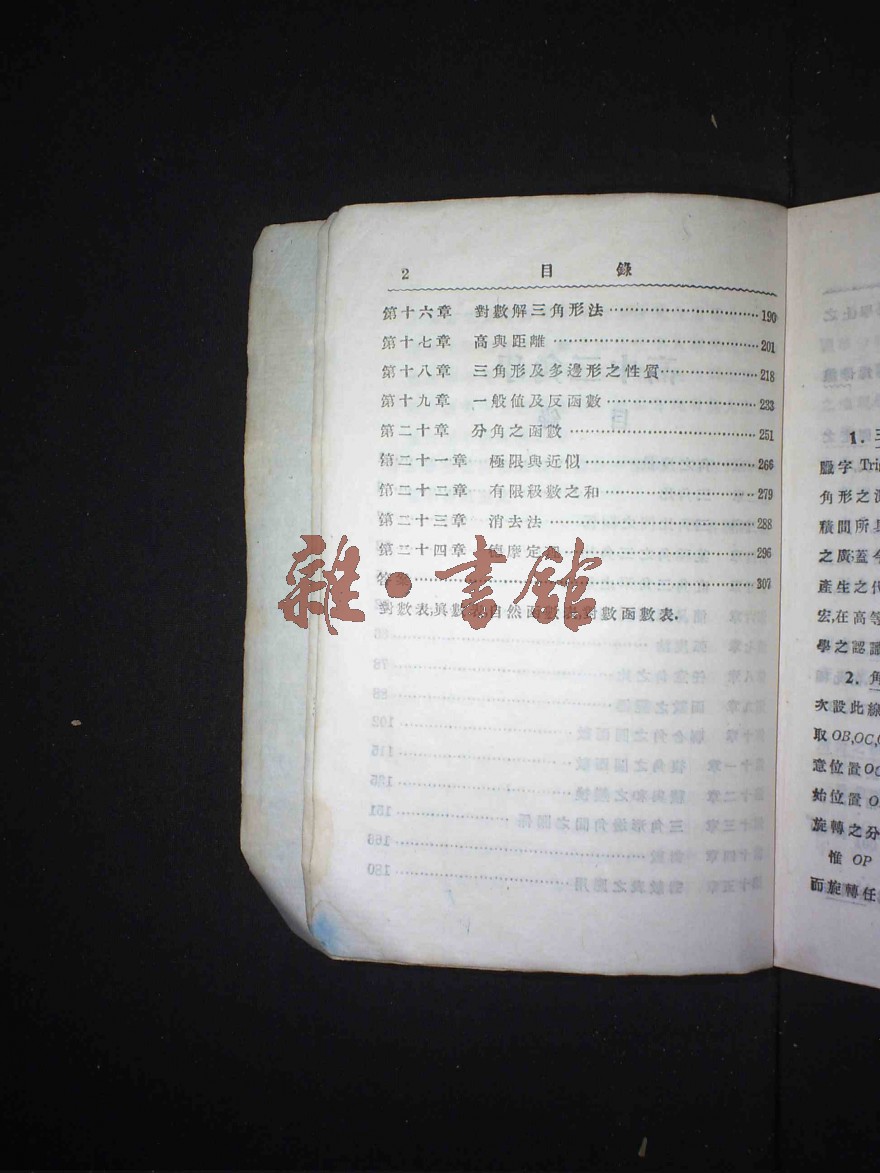 2 目錄
第十六章 對數解三角形法 190
第十七章 高與距離 201
第十八章 三角形及多邊形之性質 218
第十九章 一般值及反函數 233
第二十章 分角之函數 251
第二十一章 極限與近似 266
第二十二章 有限級數之和 279
第二十三章 消去法 288
第二十四章 296
307
數表,真數 自然函數 對數函數表.
雜·書館
1.
臘字 Tri
角形之
積間所
之廣蓋今
產生之代
宏,在高等
學之認識
2. 角
次設此線
取 OB,OC,
意位置 OC
始位置 O
旋轉之分
惟 OP
而旋轉任